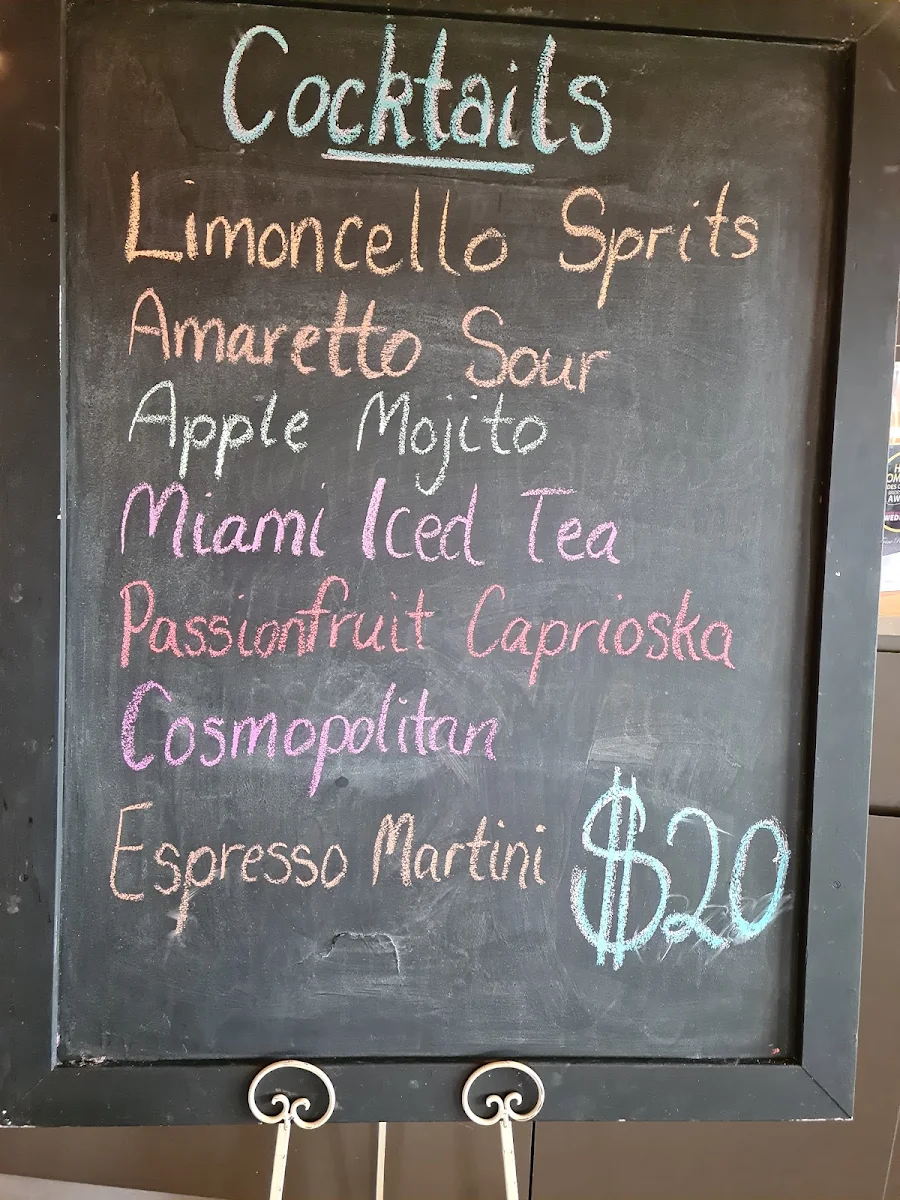 Cocktails
Limoncello Sprits
Amaretto Sour
Apple Mojito
Miami Iced Tea
Passionfruit Caprioska
Cosmopolitan
Espresso Martini $20